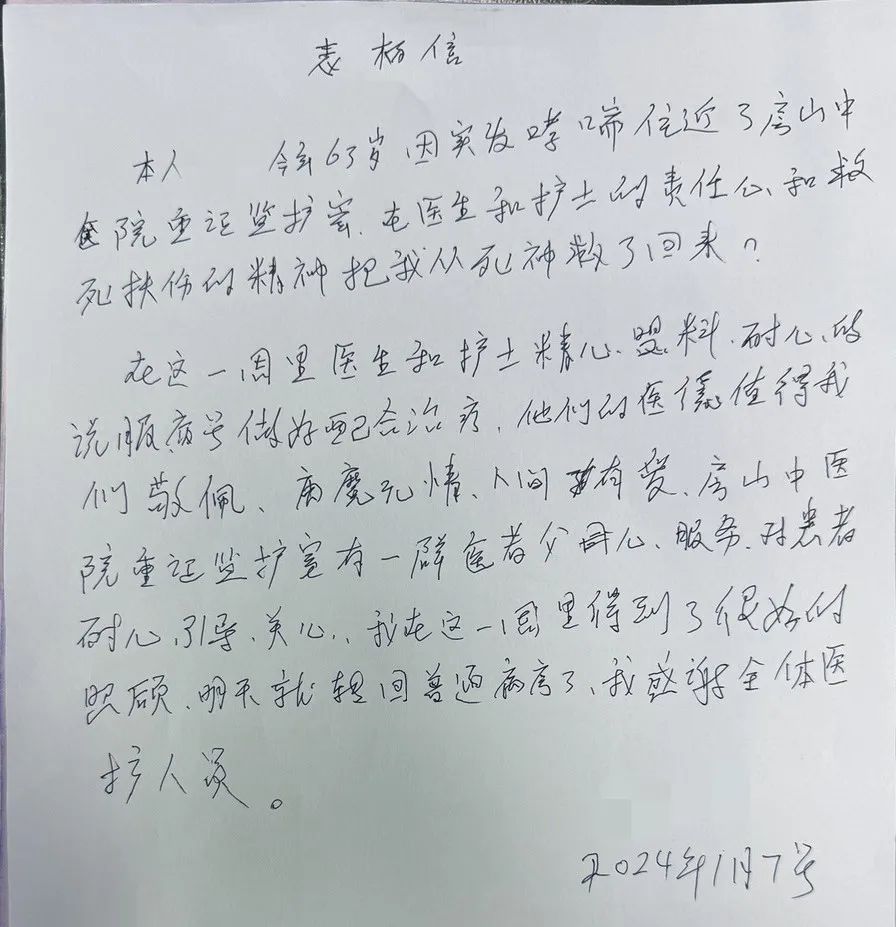 表杨信
本人 今年63岁因突发哮喘住近了房山中
医院重证监护室、在医生和护士的责任心、和救
死扶伤的精神把我从死神救了回来?
在这一周里医生和护士精心、照料、耐心、的
说服病号做好配合治疗、他们的医德值得我
们敬佩、病魔无情、人间有爱、房山中医
院重证监护室有一群医者父母心、服务、对患者
耐心、引导、关心、、我在这一周里得到了很好的
照顾、明天就转回普通病房了、我感谢全体医
护人员。
2024年1月7号